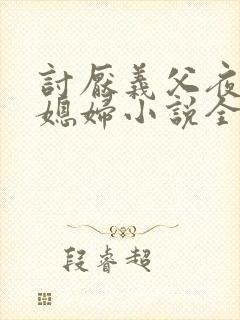 討厭義父夜
媳婦小說全
段睿超